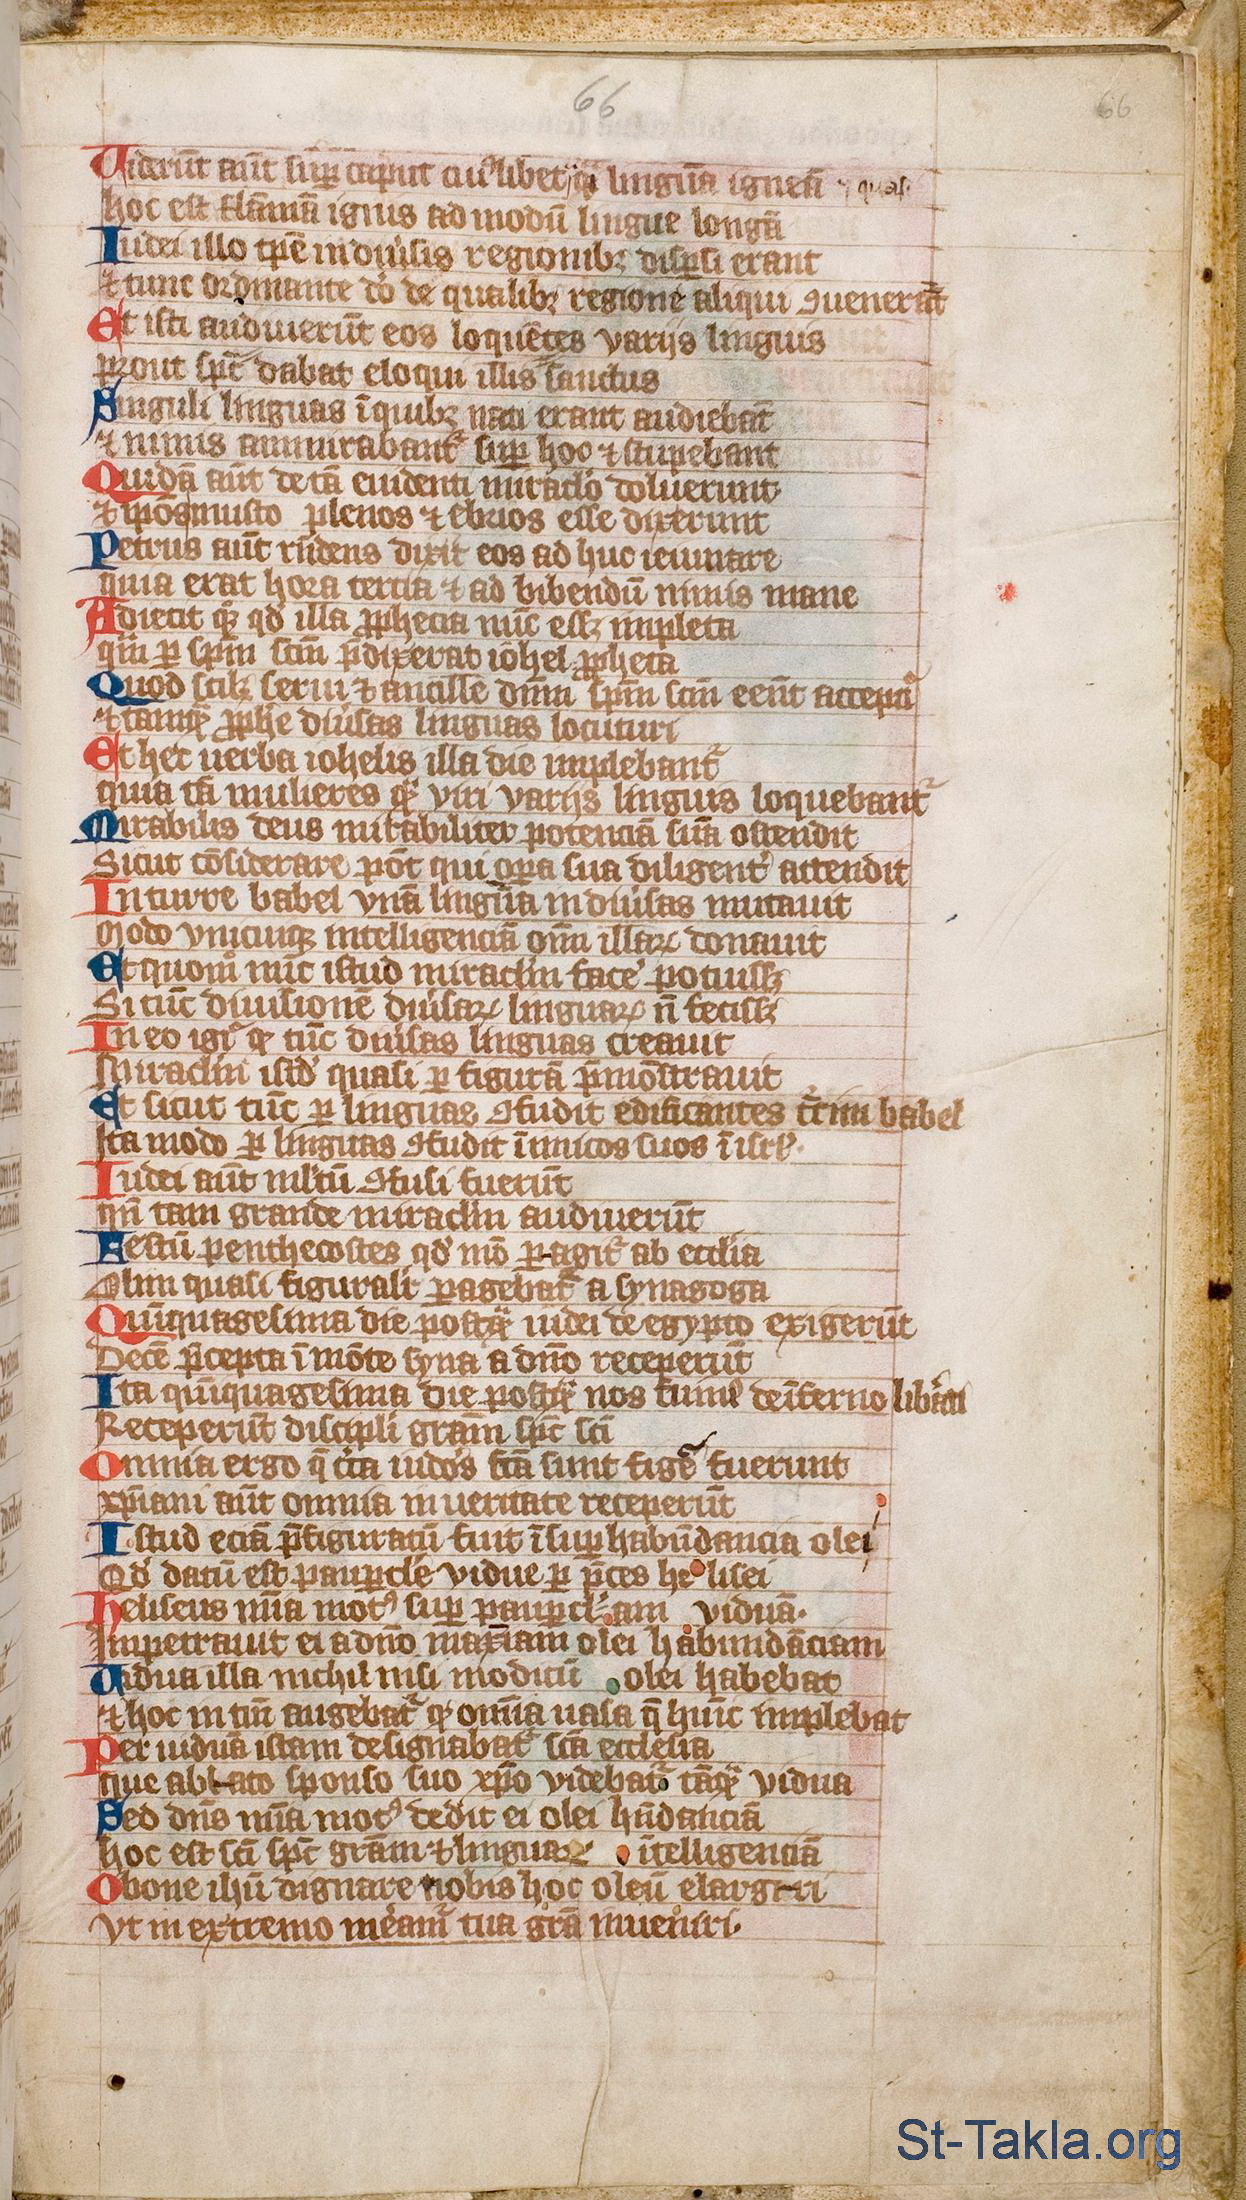 66
66
Uiderūt aūt sup caput cuiꝰlibet qi linguā igneā quasi
hoc est flāmā ignis ad modū lingue longā
Iudei illo tpē in diuīsis regionibꝫ dispsi erant
⁊ tunc ordinante dō de qualibꝫ regione aliqui ꝯuenerāt
Et isti audiuerūt eos loquētes varijs linguis
prout spc̄ dabat eloqui illis sanctus
Singuli linguas ī quibꝫ nati erant audiebāt
⁊ nimis ammirabant᷑ sup hoc ⁊ stupebant
Quidā aūt de tā euidenti miraclo doluerunt
⁊ ip̄os musto plenos ⁊ ebrios esse dixerunt
Petrus aūt rn̄dens dixit eos ad huc ieiunare
quia erat hora tertia ⁊ ad bibendū nimis mane
Adiecit qꝫ qd̓ illa ꝓphecia nūc essꝫ impleta
qm̄ ꝑ spm̄ scm̄ p̄dixerat iohel ꝓpheta
Quod scilꝫ serui ⁊ ancille dn̄i spm̄ scm̄ eēnt accepturi
⁊ tamqꝫ ꝓphe diu̓sas linguas locuturi
Et hec uerba iohelis illa die implebant᷑
quia tā mulieres qꝫ viri varijs linguis loquebant᷑
Mirabilis deus mirabiliter potenciā suā ostendit
Sicut cōsiderare pōt qui oꝑa sua diligent̓ attendit
In turre babel vnā linguā in diu̓sas mutauit
Modo vnicuiqꝫ intelligenciā oīm illaꝝ donauit
Et quom̄ nūc istud miraclm̄ face̓ potuissꝫ
Si tūc diuisionē diu̓saꝝ linguaꝝ n̄ fecissꝫ
In eo igr̓ qꝫ tūc diu̓sas linguas creauit
Miraclm̄ istd̓ quasi ꝑ figurā p̄mōstrauit
Et sicut tūc ꝑ linguas ꝯfudit edificantes tr̄im babel
Ita modo ꝑ linguas ꝯfudit īimicos suos ī isrl̓
Iudei aūt ml̓tū ꝯfusi fuerūt
qn̄ tam grande miraclm̄ audiuerūt
Festū penthecostes qd̓ mō ꝑagit᷑ ab eccl̄ia
Olim quasi figuralit̓ ꝑagebat᷑ a synagoga
Quīquagesima die postqꝫ iudei de egypto exigerūt
Decē p̄cepta ī mōte syna a dn̄o receperūt
Ita quīquagesima die postqꝫ nos fuimꝰ de īferno lib̓ati
Receperūt discipl̓i gr̄am spc̄ sci
Omnia ergo q̄ cc̓a iudos̓ fc̄a sunt fige̓ fuerunt
xp̄iani aūt omnia in ueritate receperūt
Istud eciā p̄figuratū fuit ī suꝑhabūdancia olei
Qd̓ datū est pauꝑcle̓ vidue ꝑ p̄ces helisei
Heliseus mīa motꝰ sup pauꝑcl̓am viduā
Impetrauit ei a dn̄o maxīam olei habundāciam
Uidua illa nichil nisi modicū olei habebat
⁊ hoc in tm̄ augebat᷑ qꝫ omīa uasa q̄ hūit implebat
Per uiduā istam designabat᷑ scā ecclesia
que ablato sponso suo xp̄o videbat᷑ tāqꝫ vidua
Sed dn̄s mīa motꝰ dedit ei olei hn̄danciā
hoc est sci spc̄ gr̄am ⁊ linguaꝝ ītelligenciā
O bone ihū dignare nobis hoc oleū elargiri
Ut in extremo mēam᷑ tua gr̄a inueniri.
St-Takla.org